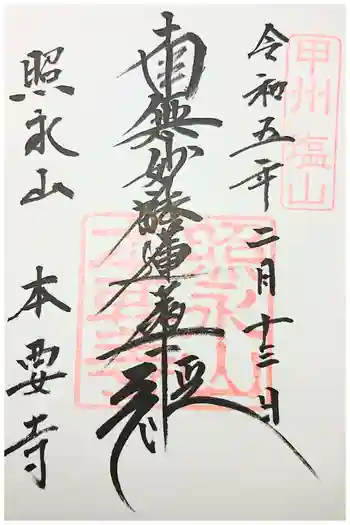 甲州
塩山
令和五年 二月十三日
南無妙法蓮華経
照永山
照永山 本要寺